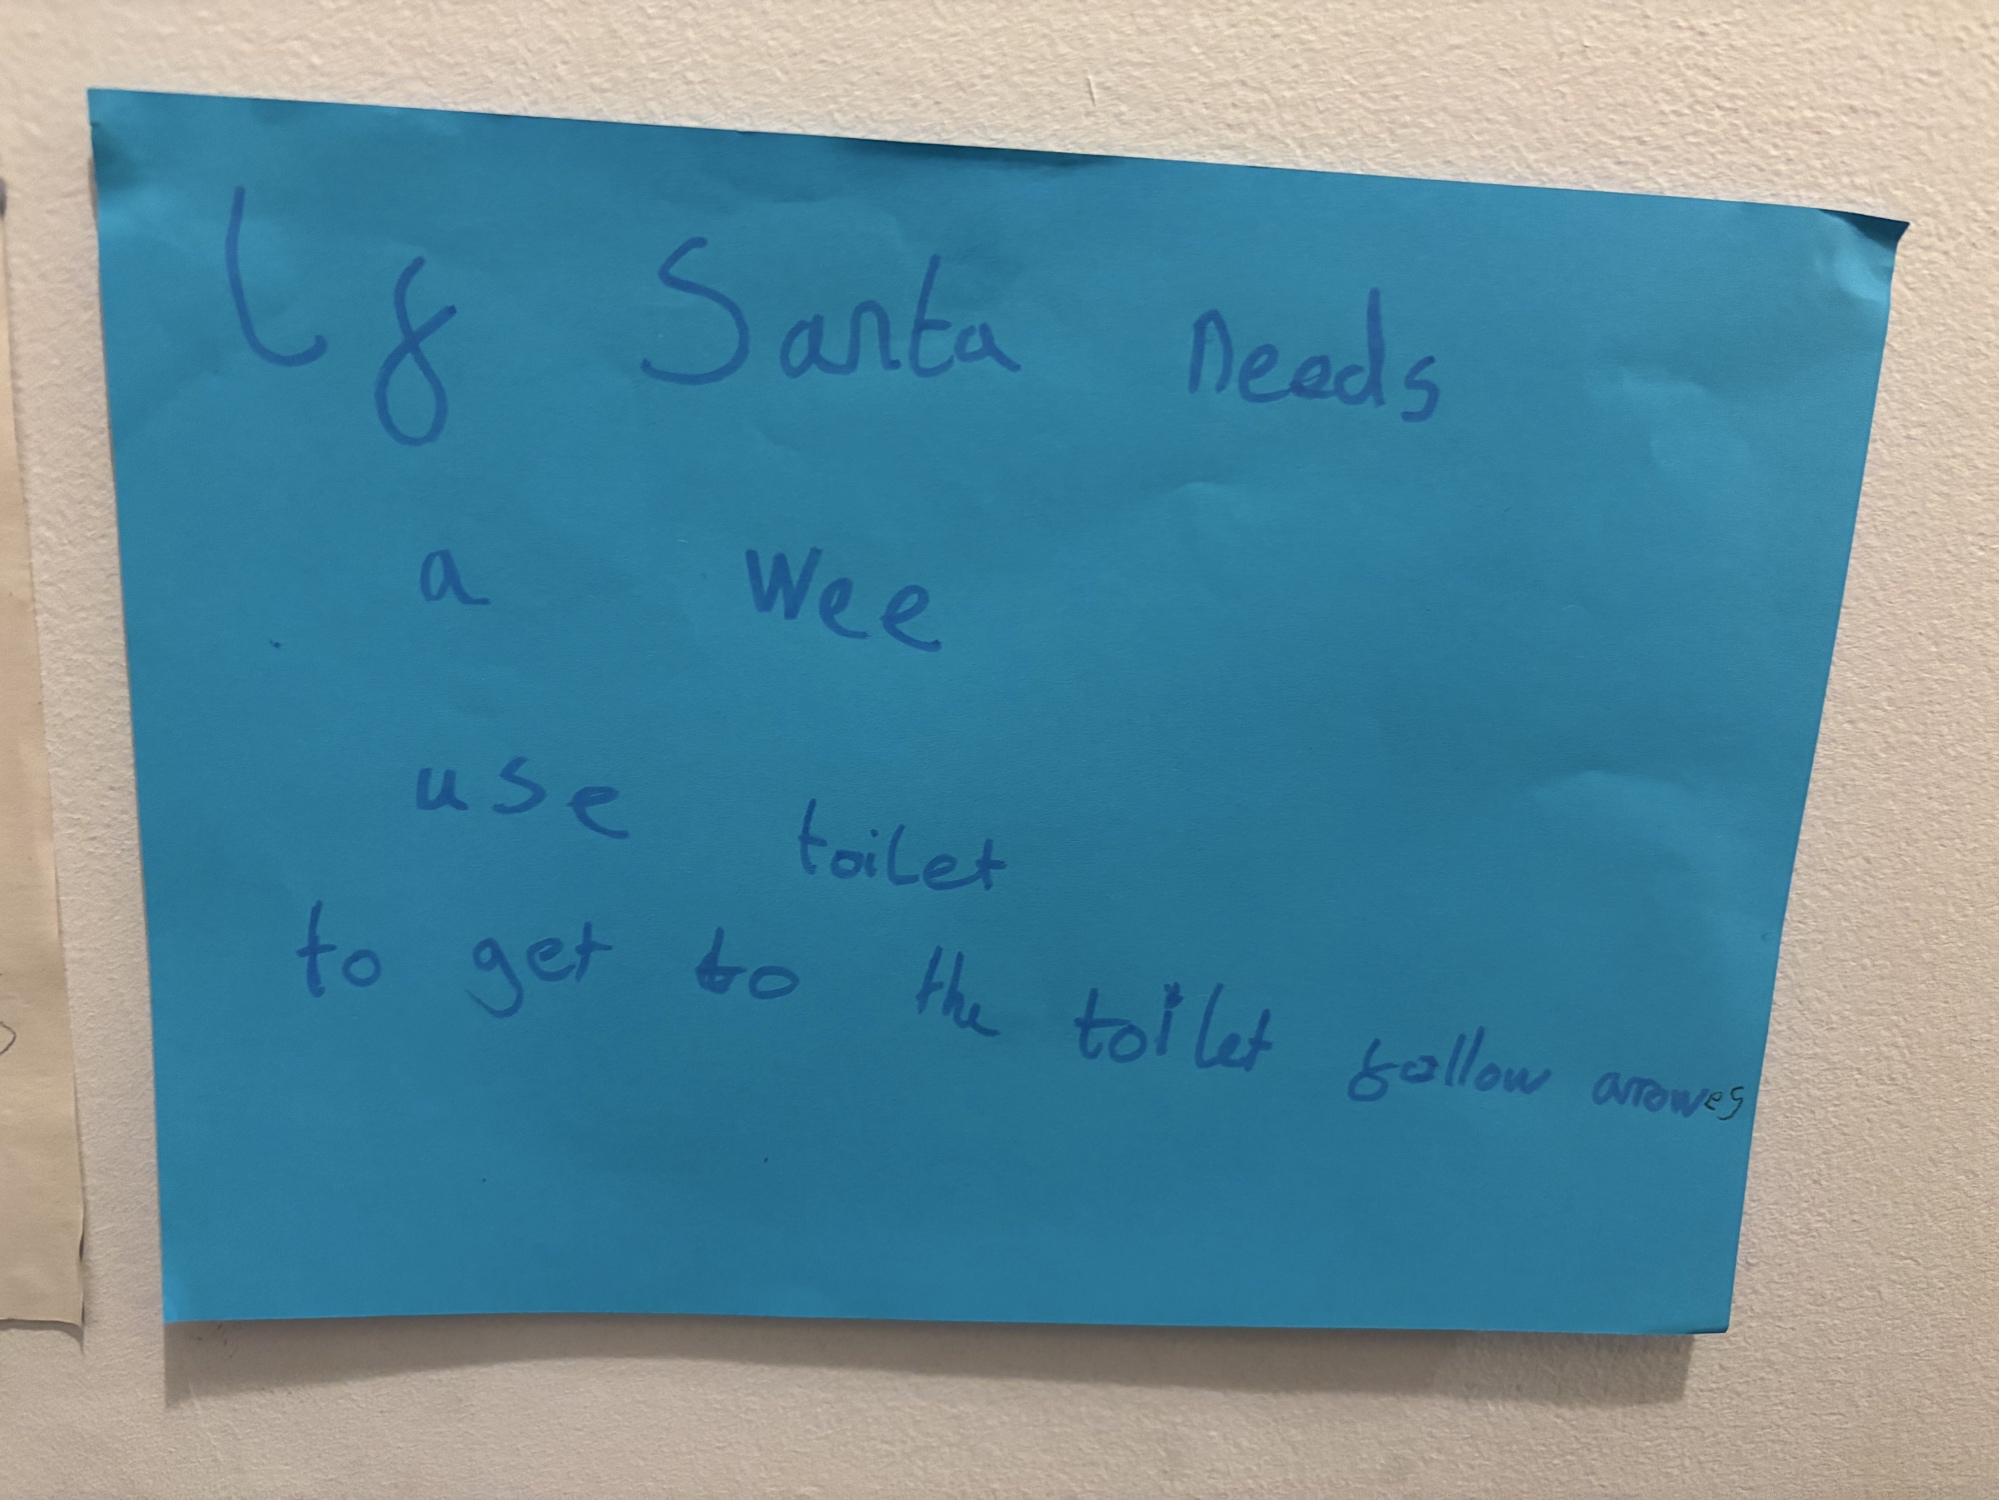 If Santa needs
a wee
use toilet
to get to the toilet follow arrowes